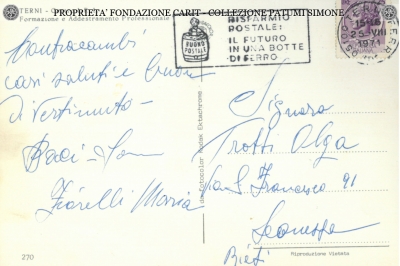 PROPRIETA' FONDAZIONE CARIT - COLLEZIONE PATUMI SIMONE
TERNI -
Formazione e Addestramento Professionale
BUONO
POSTALE
RISPARMIO
POSTALE:
IL FUTURO
IN UNA BOTTE
DI FERRO
1971
Contraccambi
cari saluti e buon
divertimento -
Baci -
Fiorelli Maria
Signora
Trotti Olga
Via S. Francesco 91
Rieti
270
da Fotocolor Kodak Ektachrome
Riproduzione Vietata